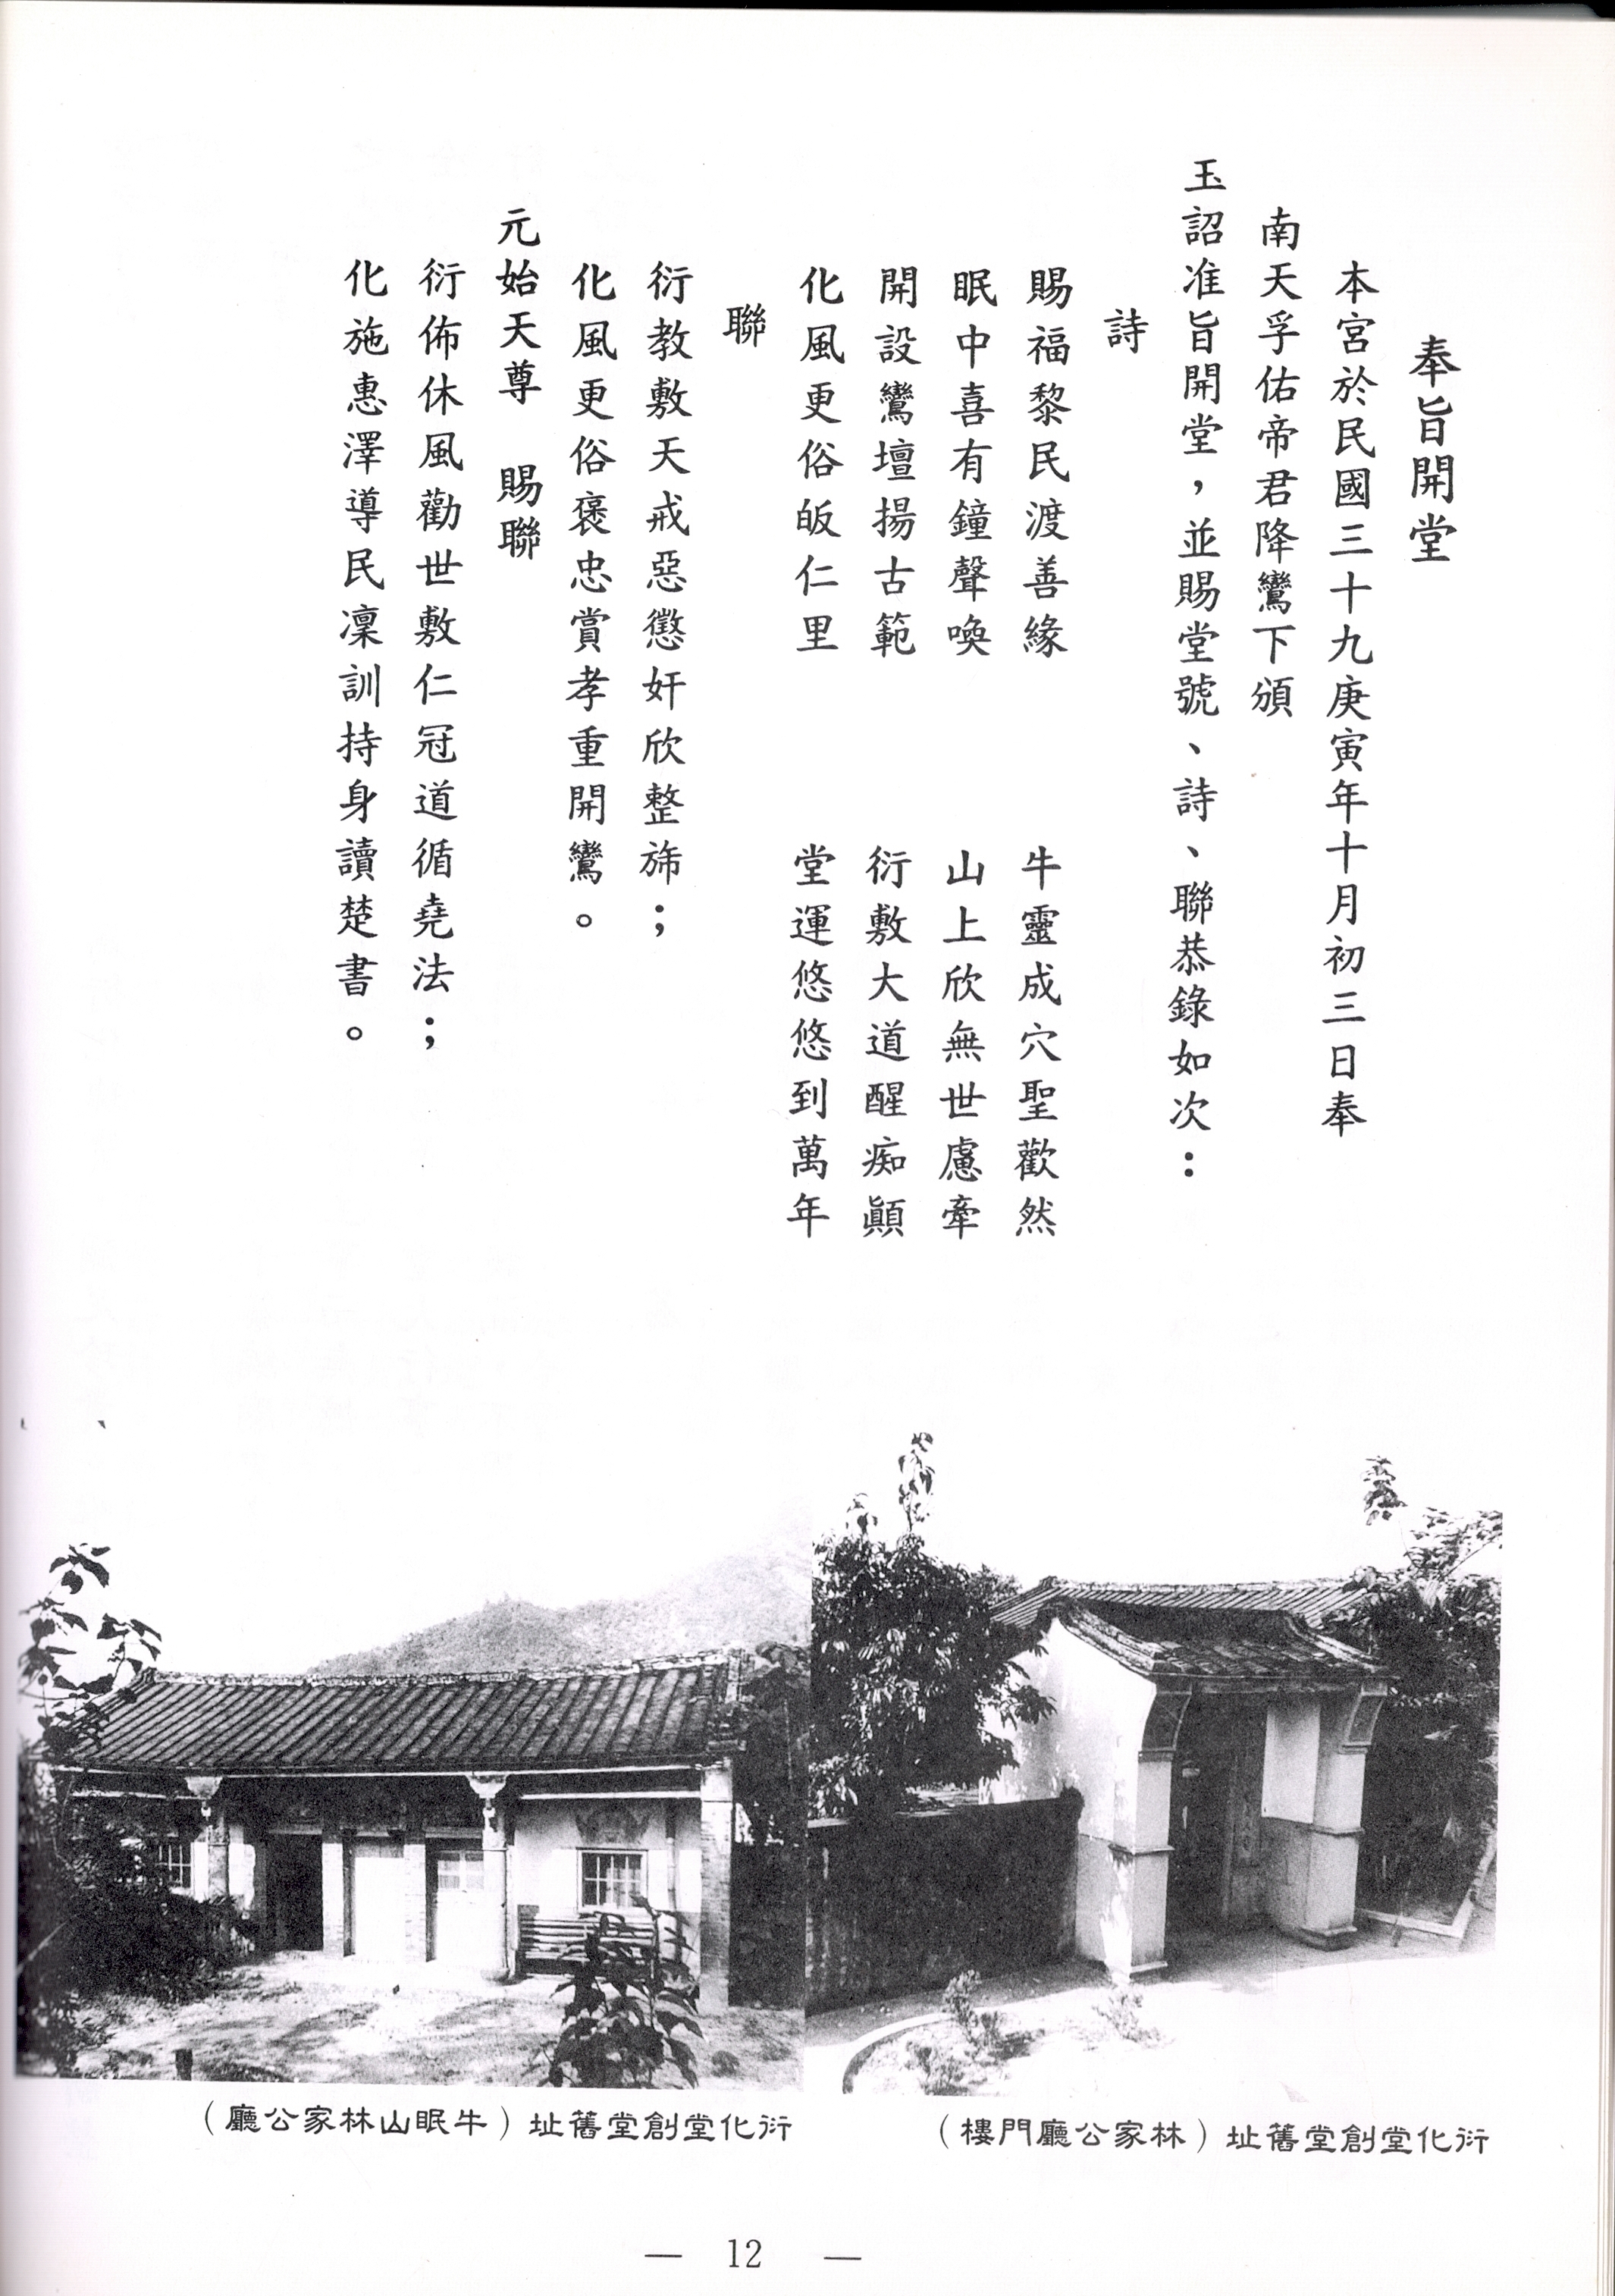 奉旨開堂
本宮於民國三十九庚寅年十月初三日奉
南天孚佑帝君降鸞下頒
玉詔准旨開堂，並賜堂號、詩、聯恭錄如次：
詩
賜福黎民渡善緣　牛靈成穴聖歡然
眠中喜有鐘聲喚　山上欣無世慮牽
開設鸞壇揚古範　衍敷大道醒痴顛
化風更俗皈仁里　堂運悠悠到萬年
聯
衍教敷天戒惡懲奸欣整斾；
化風更俗褒忠賞孝重開鸞。
元始天尊　賜聯
衍佈休風勸世敷仁冠道循堯法；
化施惠澤導民凜訓持身讀楚書。
衍化堂創堂舊址（林家公廳門樓）
衍化堂創堂舊址（牛眠山林家公廳）
— 12 —